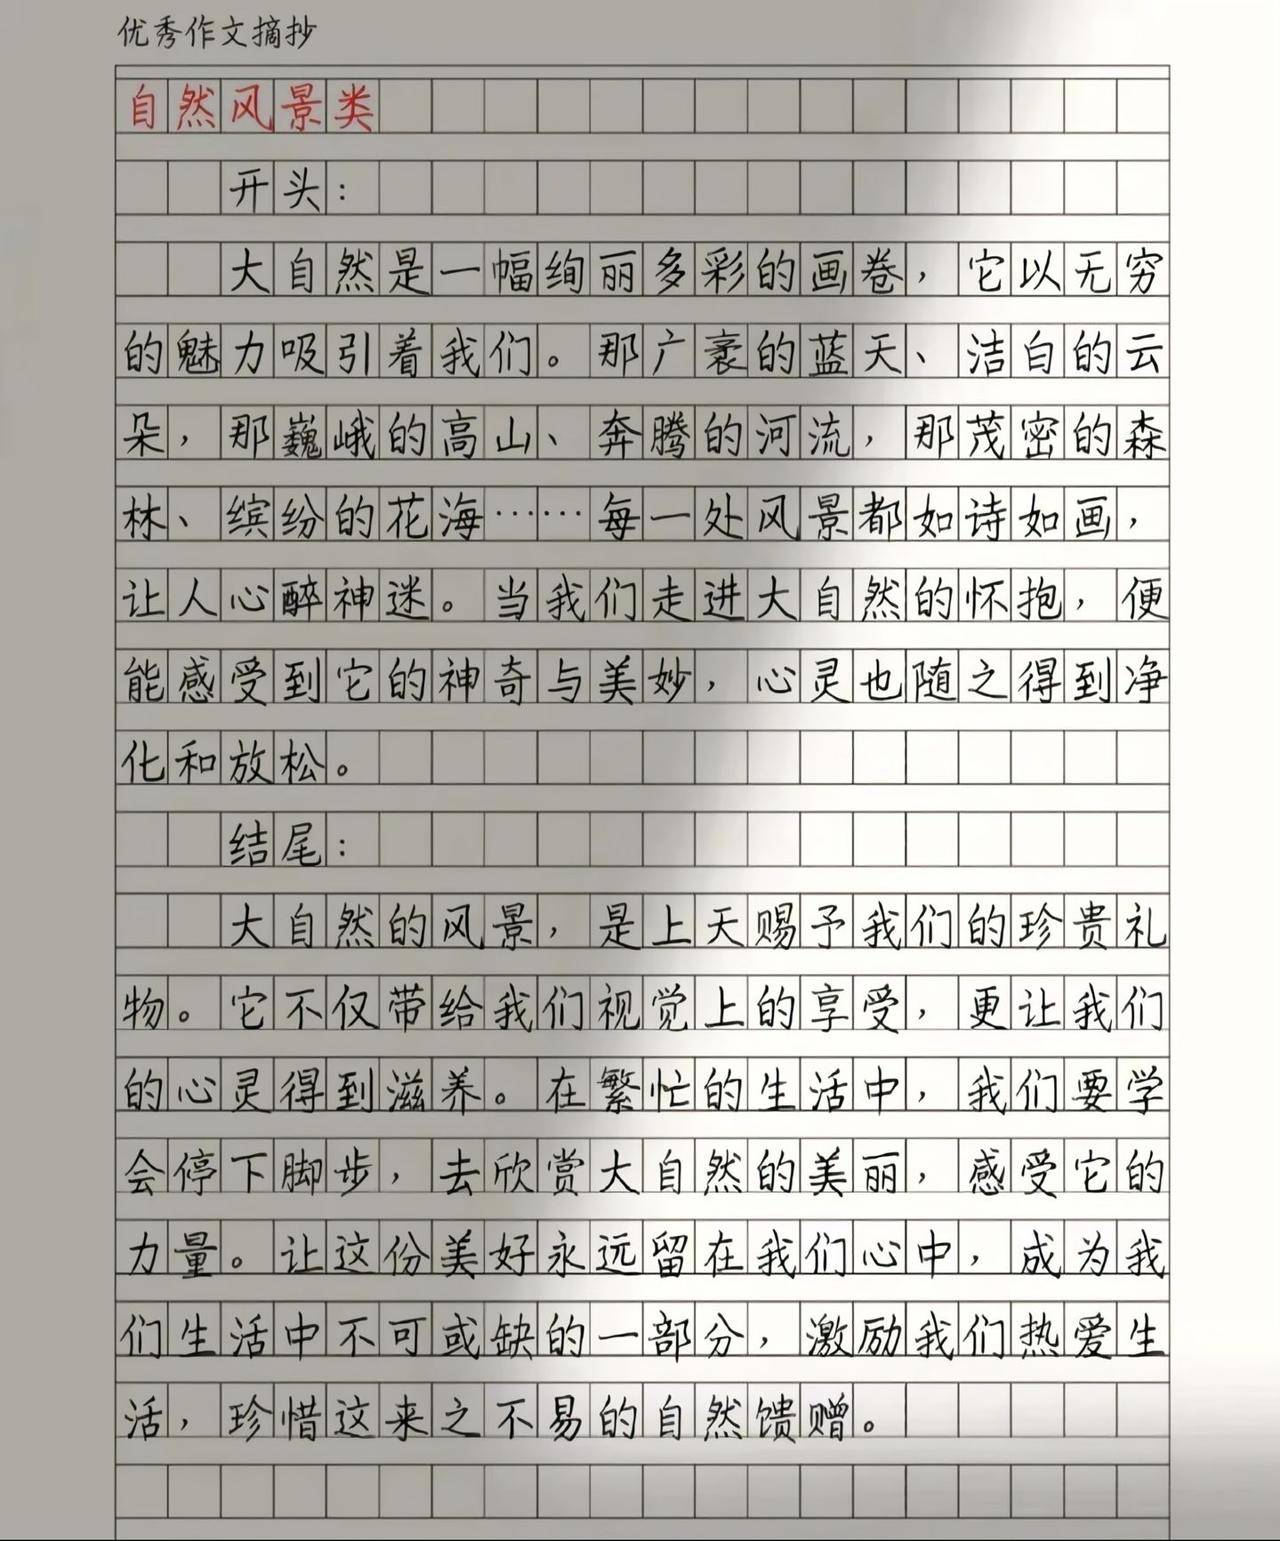 优秀作文摘抄
自然风景类
开头：
大自然是一幅绚丽多彩的画卷，它以无穷
的魅力吸引着我们。那广袤的蓝天、洁白的云
朵，那巍峨的高山、奔腾的河流，那茂密的森
林、缤纷的花海……每一处风景都如诗如画，
让人心醉神迷。当我们走进大自然的怀抱，便
能感受到它的神奇与美妙，心灵也随之得到净
化和放松。
结尾：
大自然的风景，是上天赐予我们的珍贵礼
物。它不仅带给我们视觉上的享受，更让我们
的心灵得到滋养。在繁忙的生活中，我们要学
会停下脚步，去欣赏大自然的美丽，感受它的
力量。让这份美好永远留在我们心中，成为我
们生活中不可或缺的一部分，激励我们热爱生
活，珍惜这来之不易的自然馈赠。